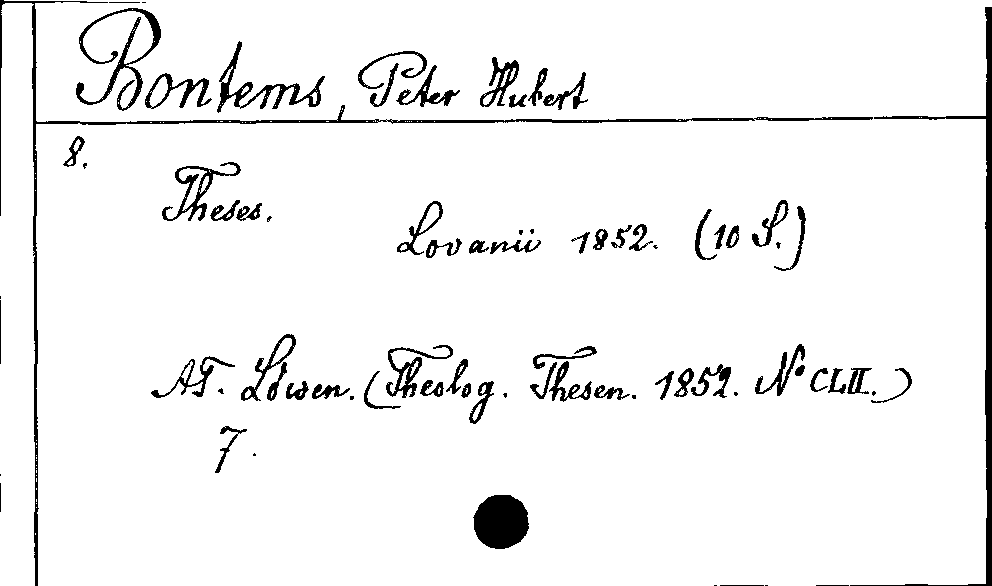 Bontems, Peter Hubert
8.
Theses.
Lovanii 1852. (10 S.)
AT. Löwen. (Theolog. Thesen. 1852. No CLII.)
7.